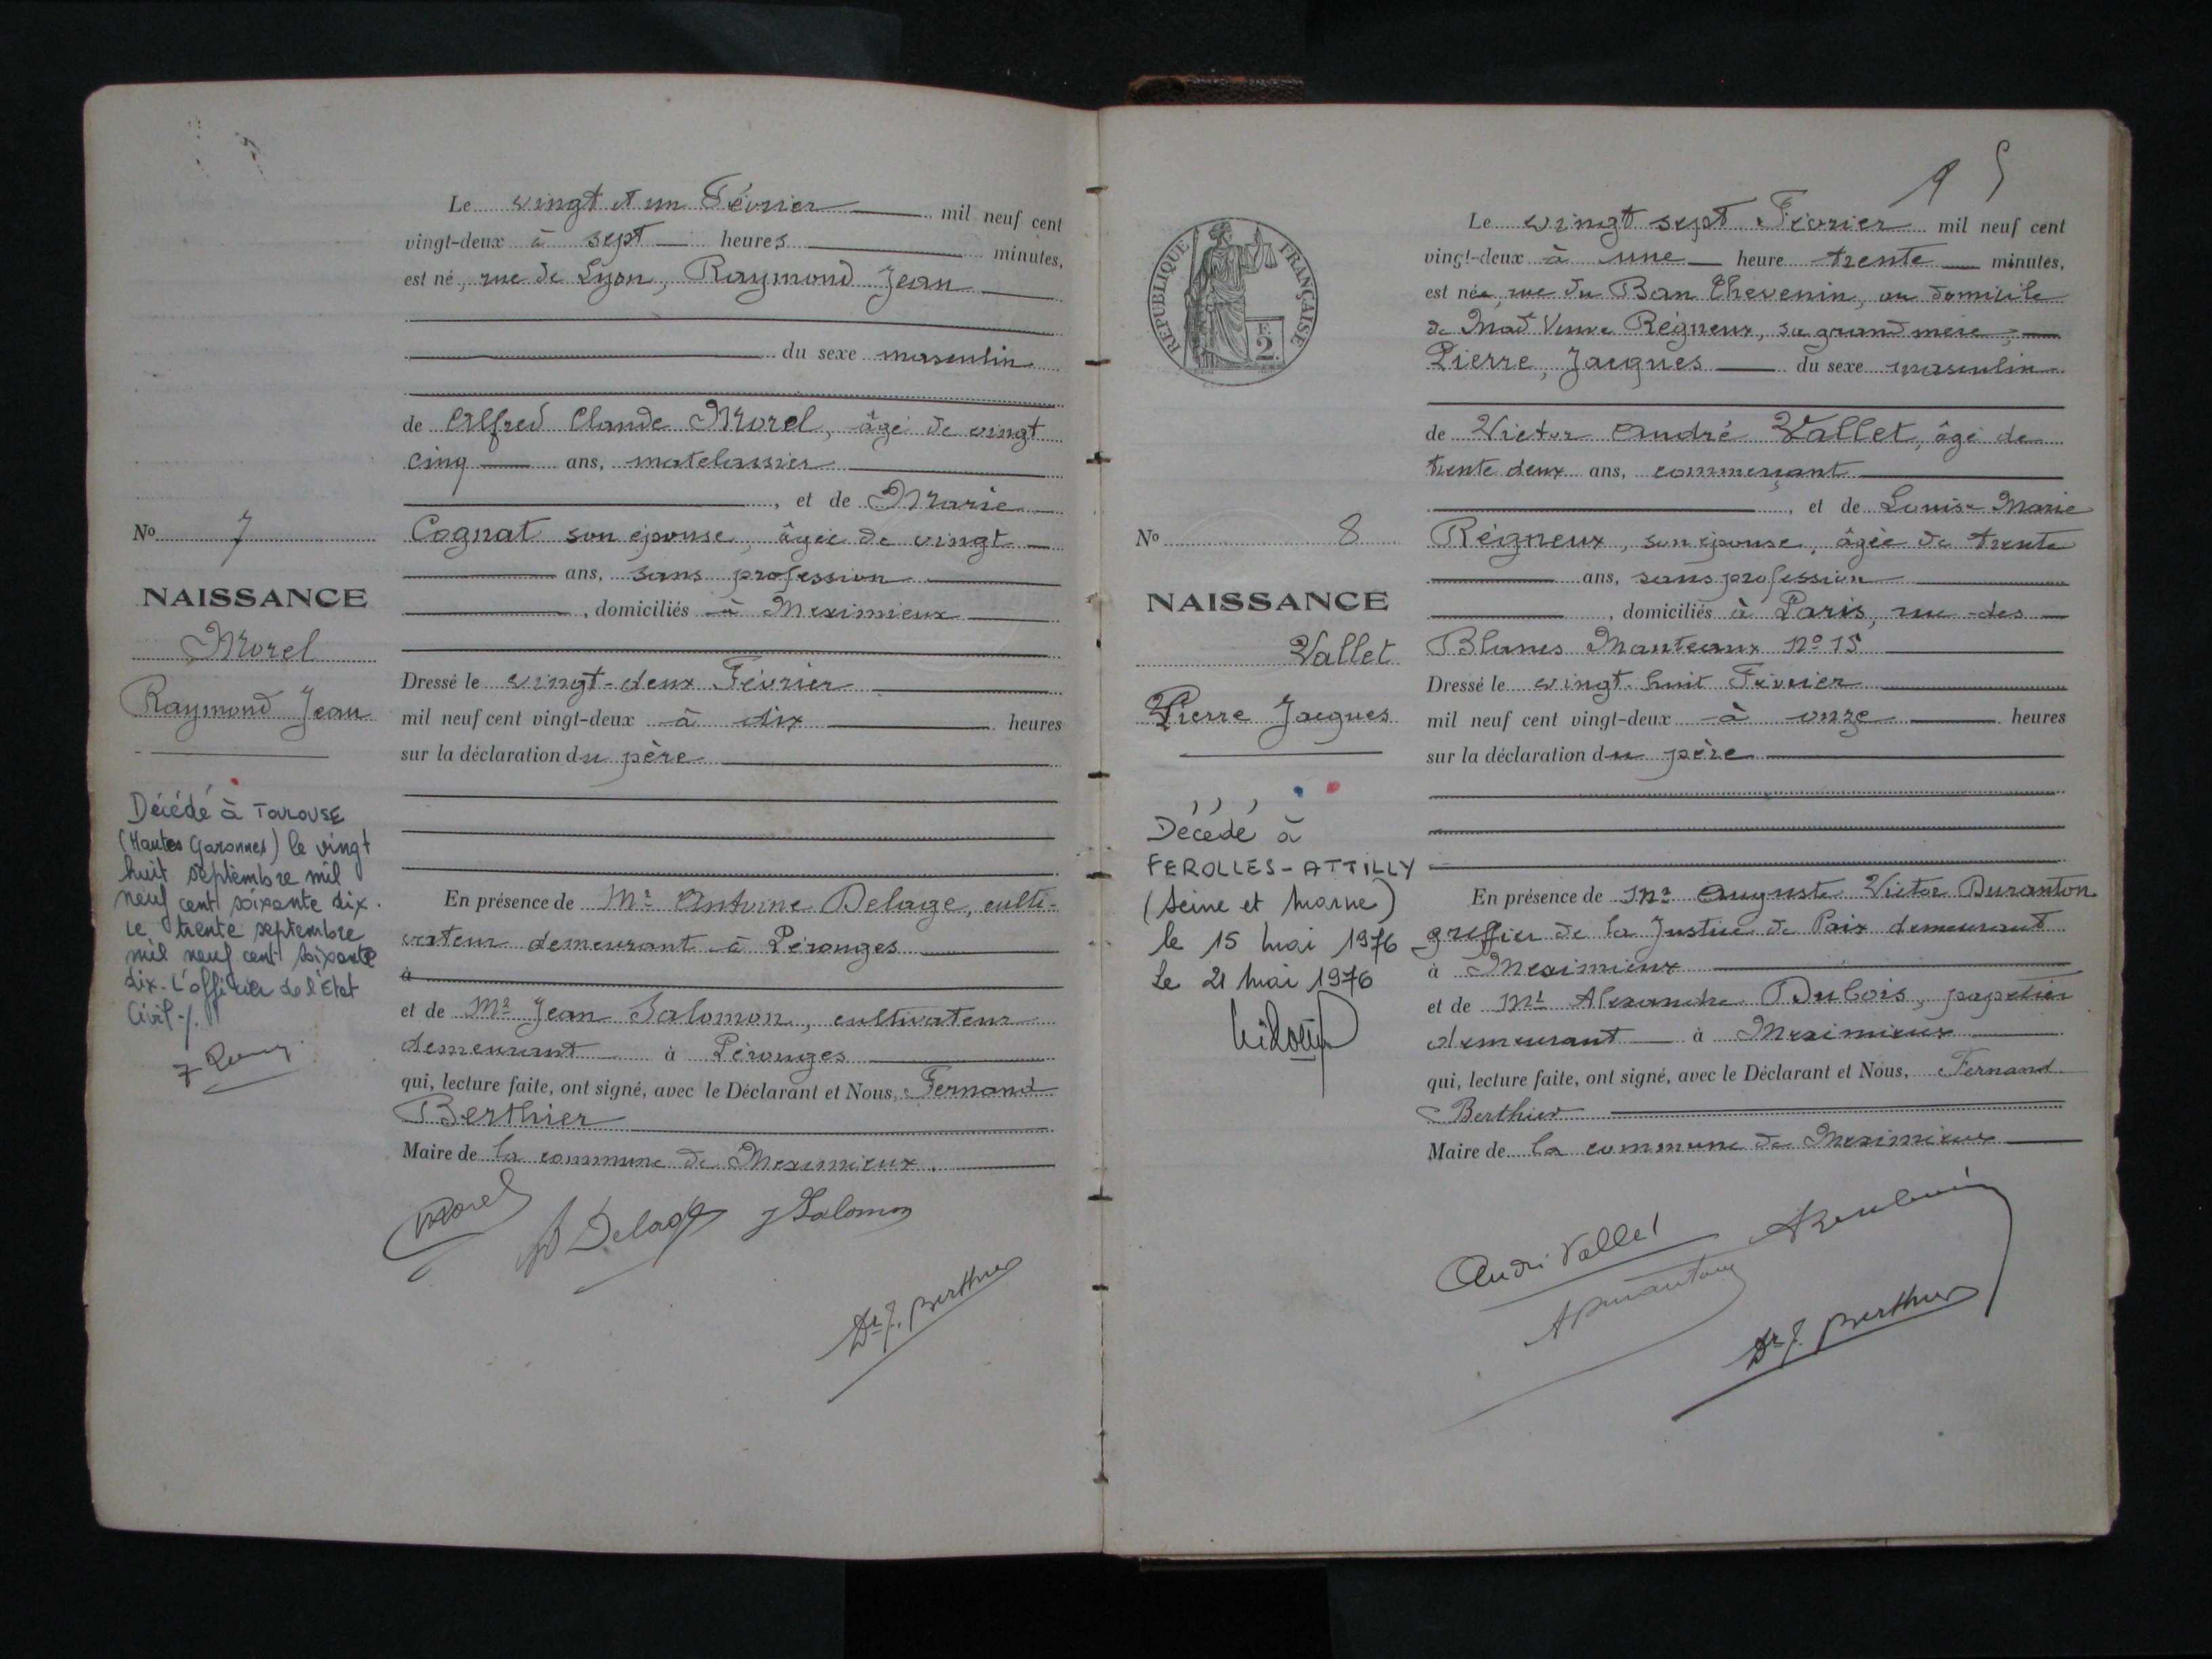 Le vingt et un Février mil neuf cent
vingt-deux à sept heures minutes,
est né, rue de Lyon, Raymond Jean
du sexe masculin
de Alfred Claude Morel, âgé de vingt
cinq ans, matelassier
, et de Marie
Cognat son épouse, âgée de vingt
ans, sans profession
, domiciliés à Meximieux
Dressé le vingt-deux Février
mil neuf cent vingt-deux à dix heures
sur la déclaration du père
En présence de Mr Antoine Delage, culti-
vateur demeurant à Pérouges
à
et de Mr Jean Salomon, cultivateur
demeurant à Pérouges
qui, lecture faite, ont signé, avec le Déclarant et Nous, Fernand
Berthier
Maire de la commune de Meximieux.
Morel
Delage J Salomon
Dr F. Berthier
No 7
NAISSANCE
Morel
Raymond Jean
Décédé à TOULOUSE
(Hautes Garonnes) le vingt
huit septembre mil
neuf cent soixante dix.
Le trente septembre
mil neuf cent soixante
dix. L'officier de l'Etat
Civil -/.
95
RÉPUBLIQUE FRANÇAISE
F.
2
Le vingt sept Février mil neuf cent
vingt-deux à une heure trente minutes,
est née, rue du Ban Thevenin, au domicile
de Mad Veuve Régneux, sa grand mère,
Pierre, Jacques du sexe masculin
de Victor André Vallet, âgé de
trente deux ans, commerçant
, et de Louise Marie
Régneux, son épouse, âgée de trente
ans, sans profession
, domiciliés à Paris, rue des
Blancs Manteaux No 15
Dressé le vingt huit Février
mil neuf cent vingt-deux à onze heures
sur la déclaration du père
En présence de Mr Auguste Victor Duranton
greffier de la Justice de Paix demeurant
à Meximieux
et de Mr Alexandre Dubois, papetier
demeurant à Meximieux
qui, lecture faite, ont signé, avec le Déclarant et Nous, Fernand
Berthier
Maire de la commune de Meximieux
André Vallet
ADuranton
Dr F. Berthier
No 8
NAISSANCE
Vallet
Pierre Jacques
Décédé à
FEROLLES-ATTILLY
(Seine et Marne)
le 15 mai 1976
Le 21 mai 1976